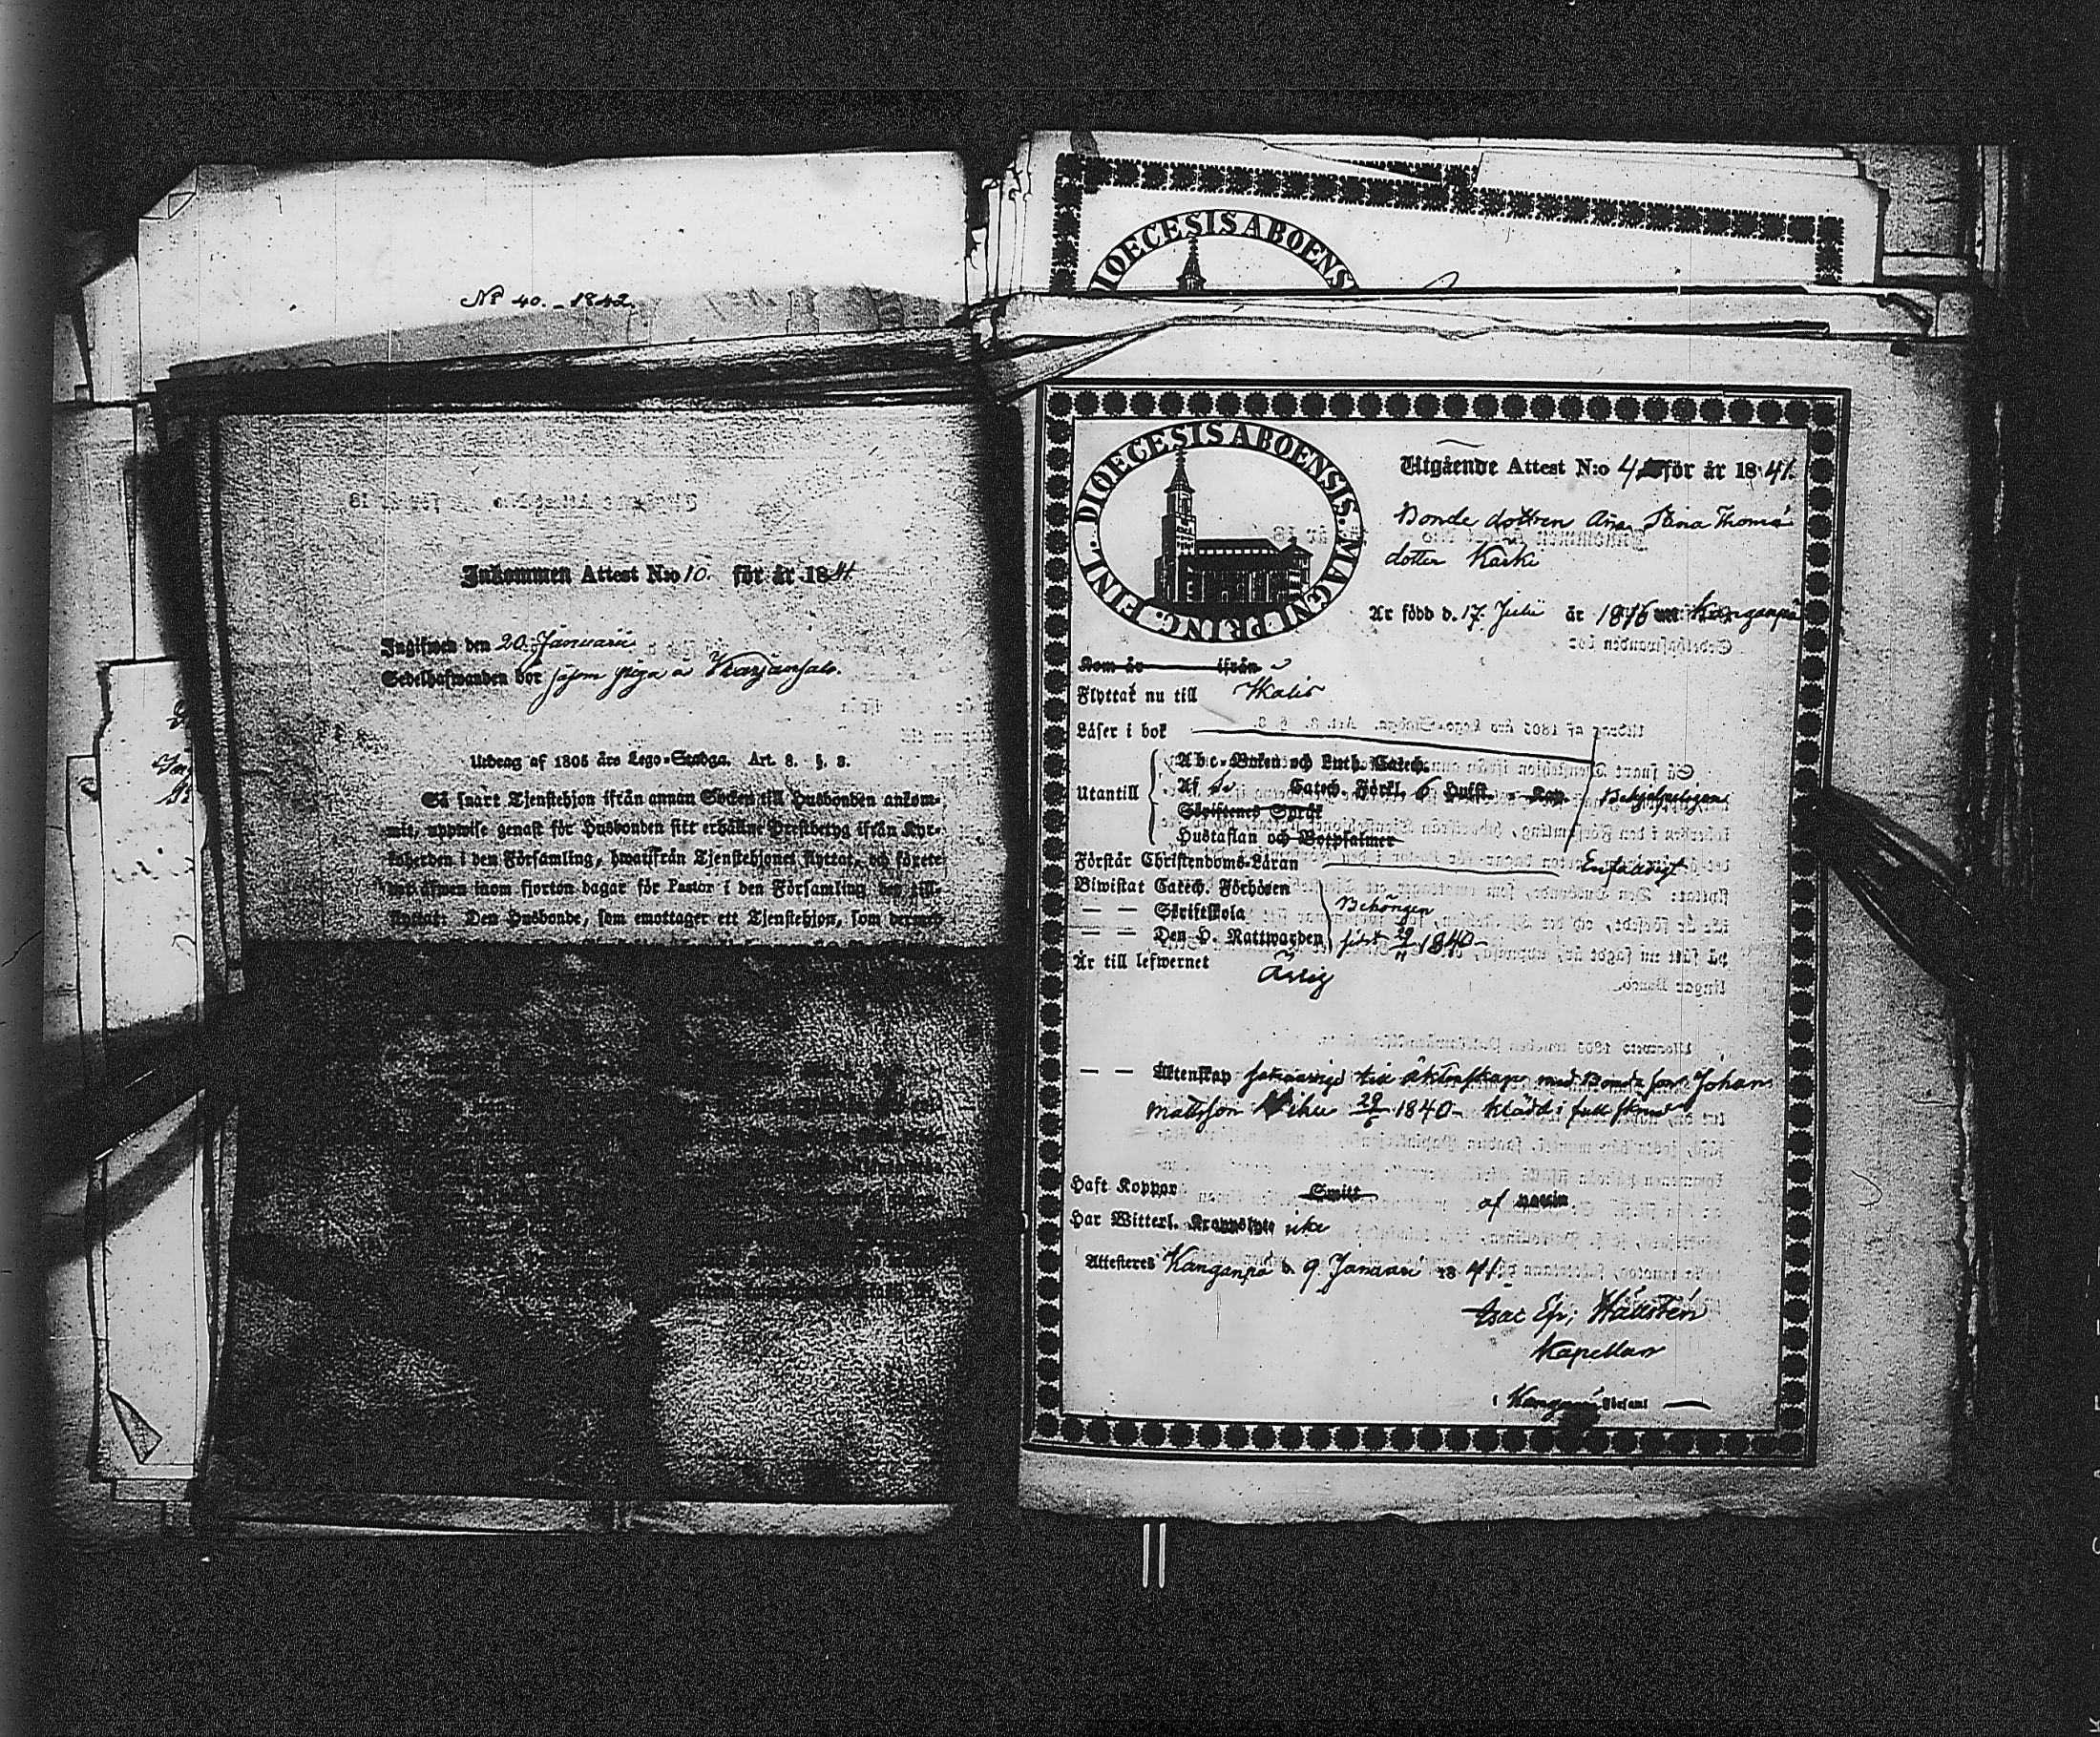 No 40. - 1842.
Inkommen Attest N:o 10. för år 1841
Ingifwen den 20. Januarii
Sedelhafwanden bor såsom piga å Karjansalo.
Utdrag af 1805 års Lego-Stadga. Art. 8. §. 8.
Så snart Tjenstehjon ifrån annan Socken till Husbonden ankommit,
uppwise genast för Husbonden sitt erhållne Prestbetyg ifrån Kyrkoherden
i den Församling, hwarifrån Tjenstehjonet flyttat, och förete
det äfwen inom fjorton dagar för Pastor i den Församling det tillflyttat:
Den Husbonde, som emottager ett Tjenstehjon, som
DIOECESIS ABOENS
DIOECESIS ABOENSIS. MAGNI PRINC. FINL.
Utgående Attest N:o 4 för år 1841.
Bonde dottren Anna Stina Thomas
dotter Karki
Är född d. 17 Julii år 1816 uti Kanganpä
Kom år ifrån
Flyttat nu till Ikalis
Läser i bok
Utantill
Abc-Boken och Luth. Catech.
Af Sv. Catech. Förkl. 6 Hufst. Kap. Behjelpeligen
Skriftenes Språk
Hustaflan och Botpsalmer
Förstår Christendoms-Läran Enfaldigt
Biwistat Catech. Förhören
— — Skriftskola Behörigen
— — Den H. Nattwarden sidst 29/11 1840
Är till lefwernet Ärlig
— — Äktenskap till äktenskap med Bonda son Johan
Mattsson 28/6 1840 - klädd i full skrud
Haft Koppor Smitt af
Har Witterl. Kroppslyte icke
Attesteres Kanganpä d. 9 Januari 1841.
Isac Ep: Hällsten
Kapellan
i Församl